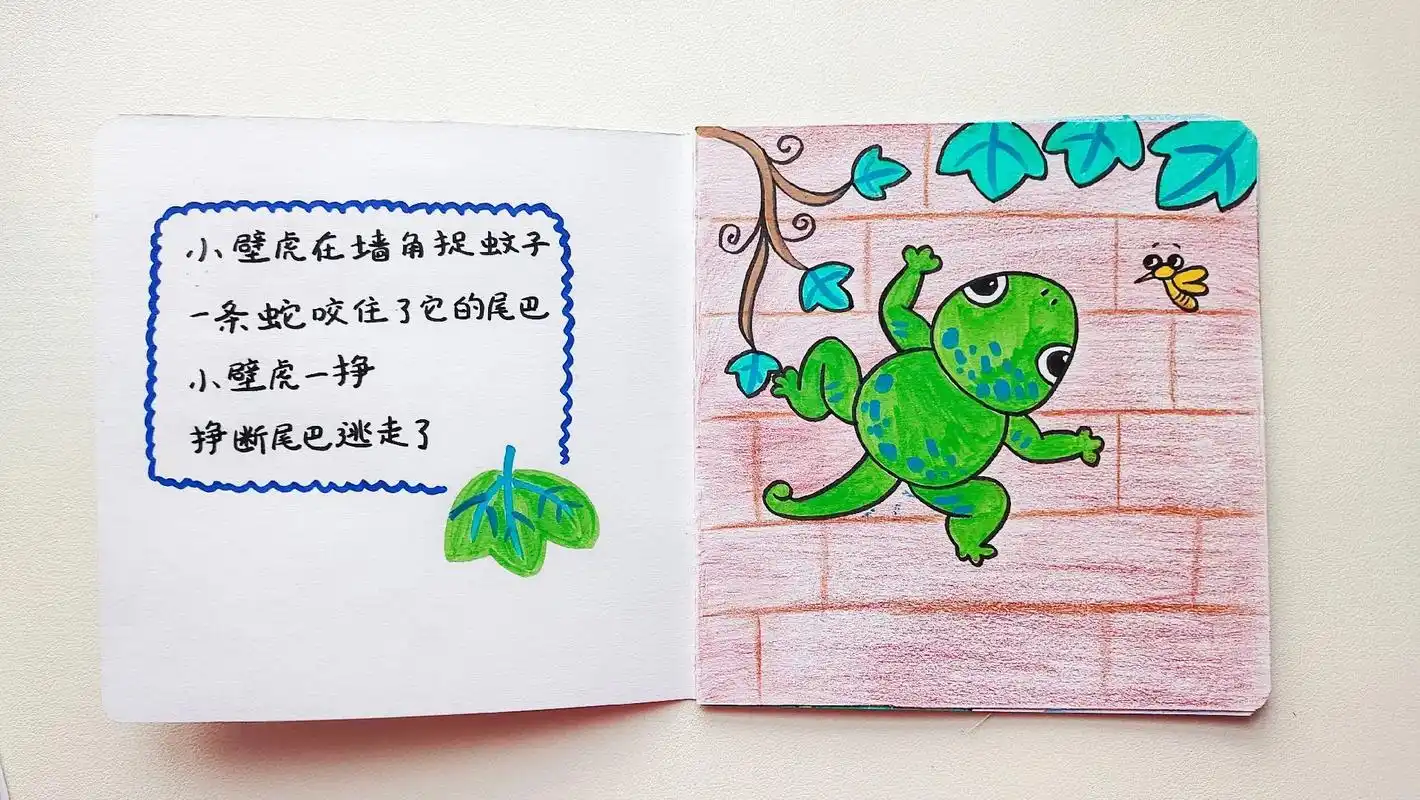 小壁虎在墙角捉蚊子
一条蛇咬住了它的尾巴
小壁虎一挣
挣断尾巴逃走了